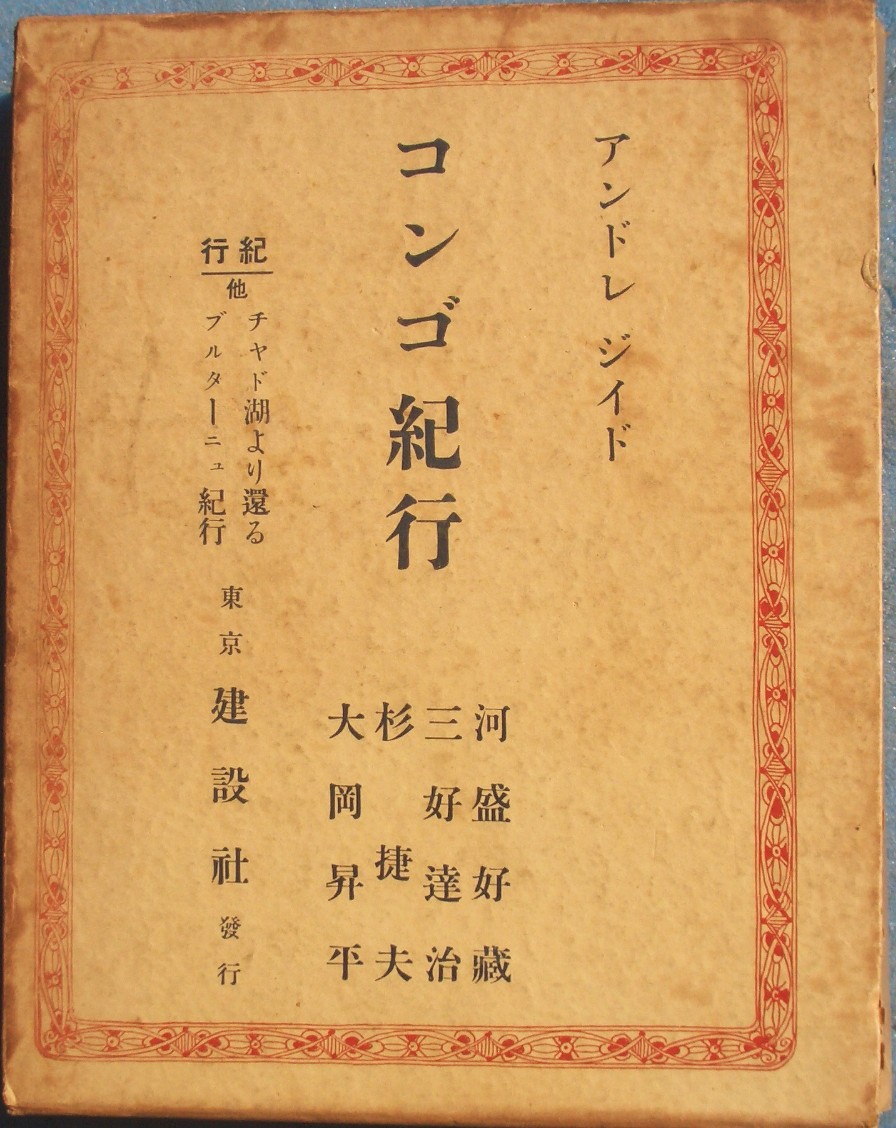 アンドレ ジイド
コンゴ紀行
河盛好藏
三好達治
杉捷夫
大岡昇平
紀行
他
チャド湖より還る
ブルターニュ紀行
東京 建設社 發行